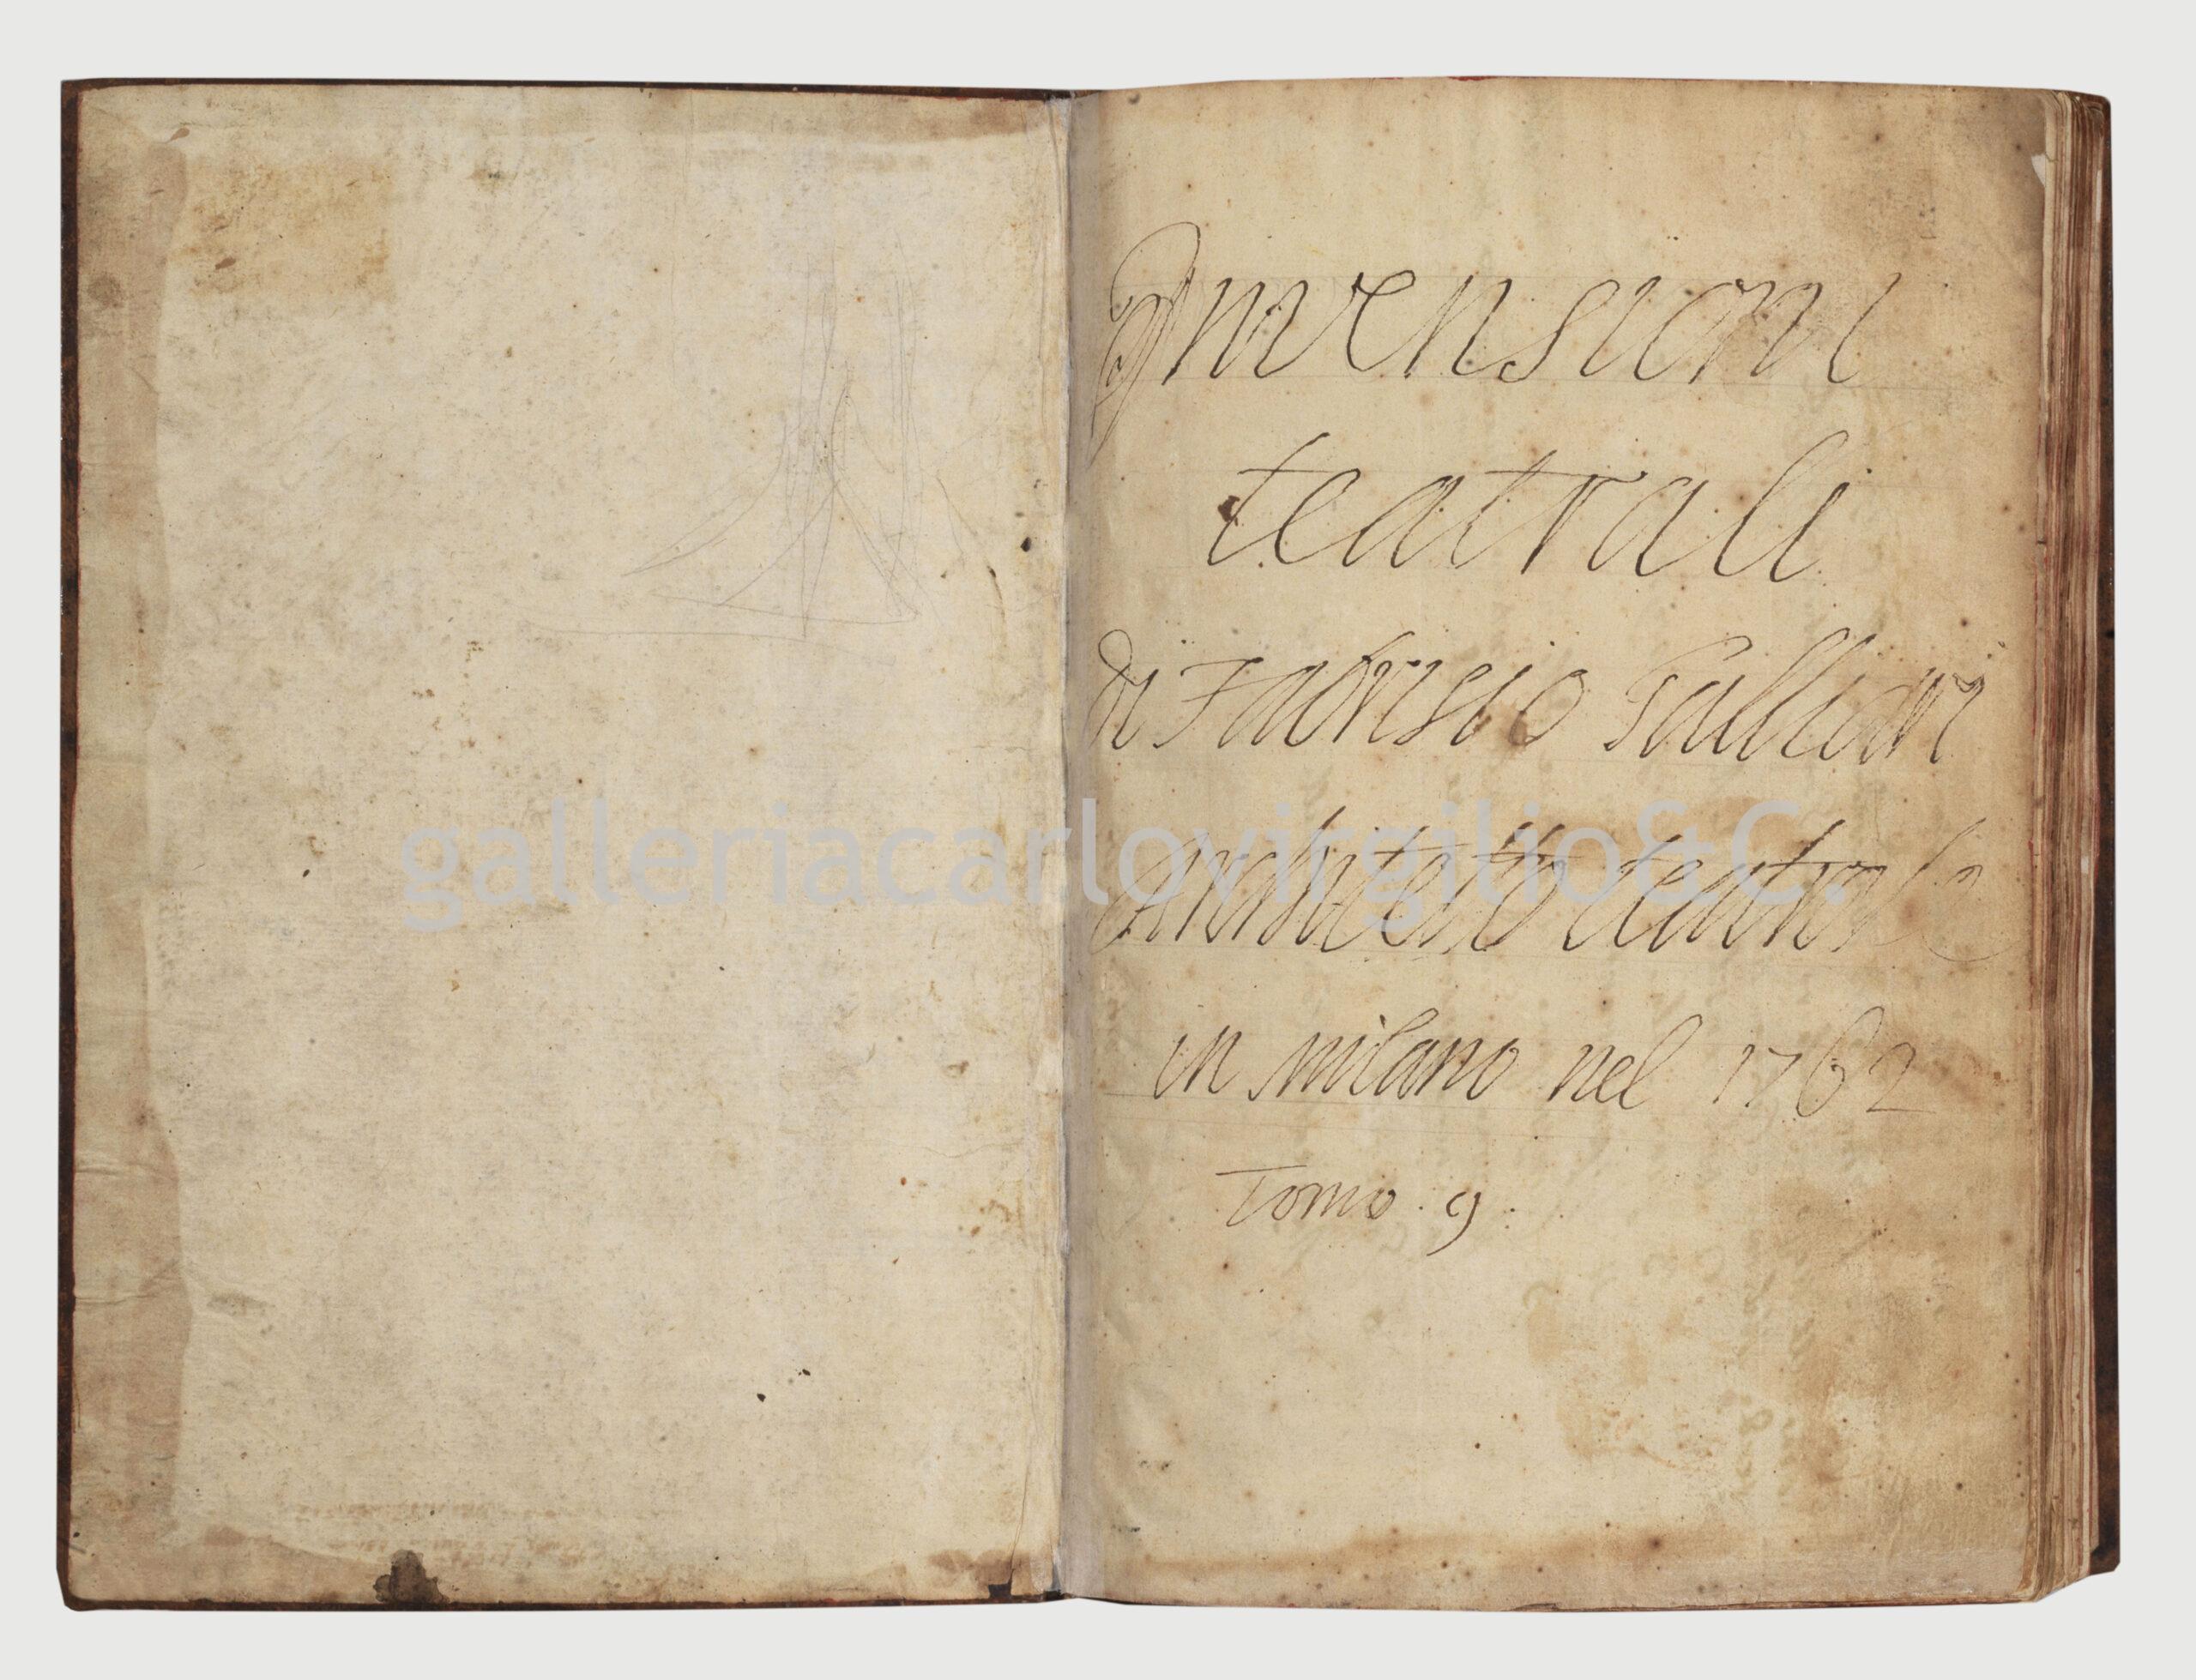 Invensioni
teatrali
di Fabrisio Galliari
Architetto teatrale
in milano nel 1762
Tomo . 9 .
galleriacarlovirgilio&C.